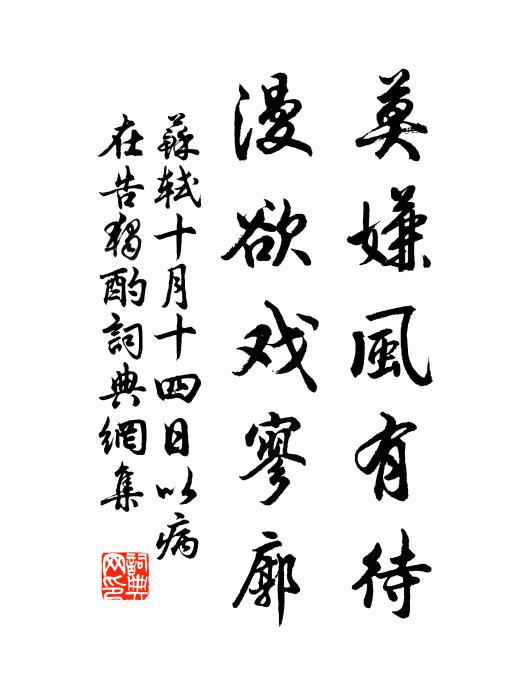 莫嫌風有待
漫欲戏寥廓
蘇軾十月十四日以病
在告獨酌詞典網集
詞典
网印